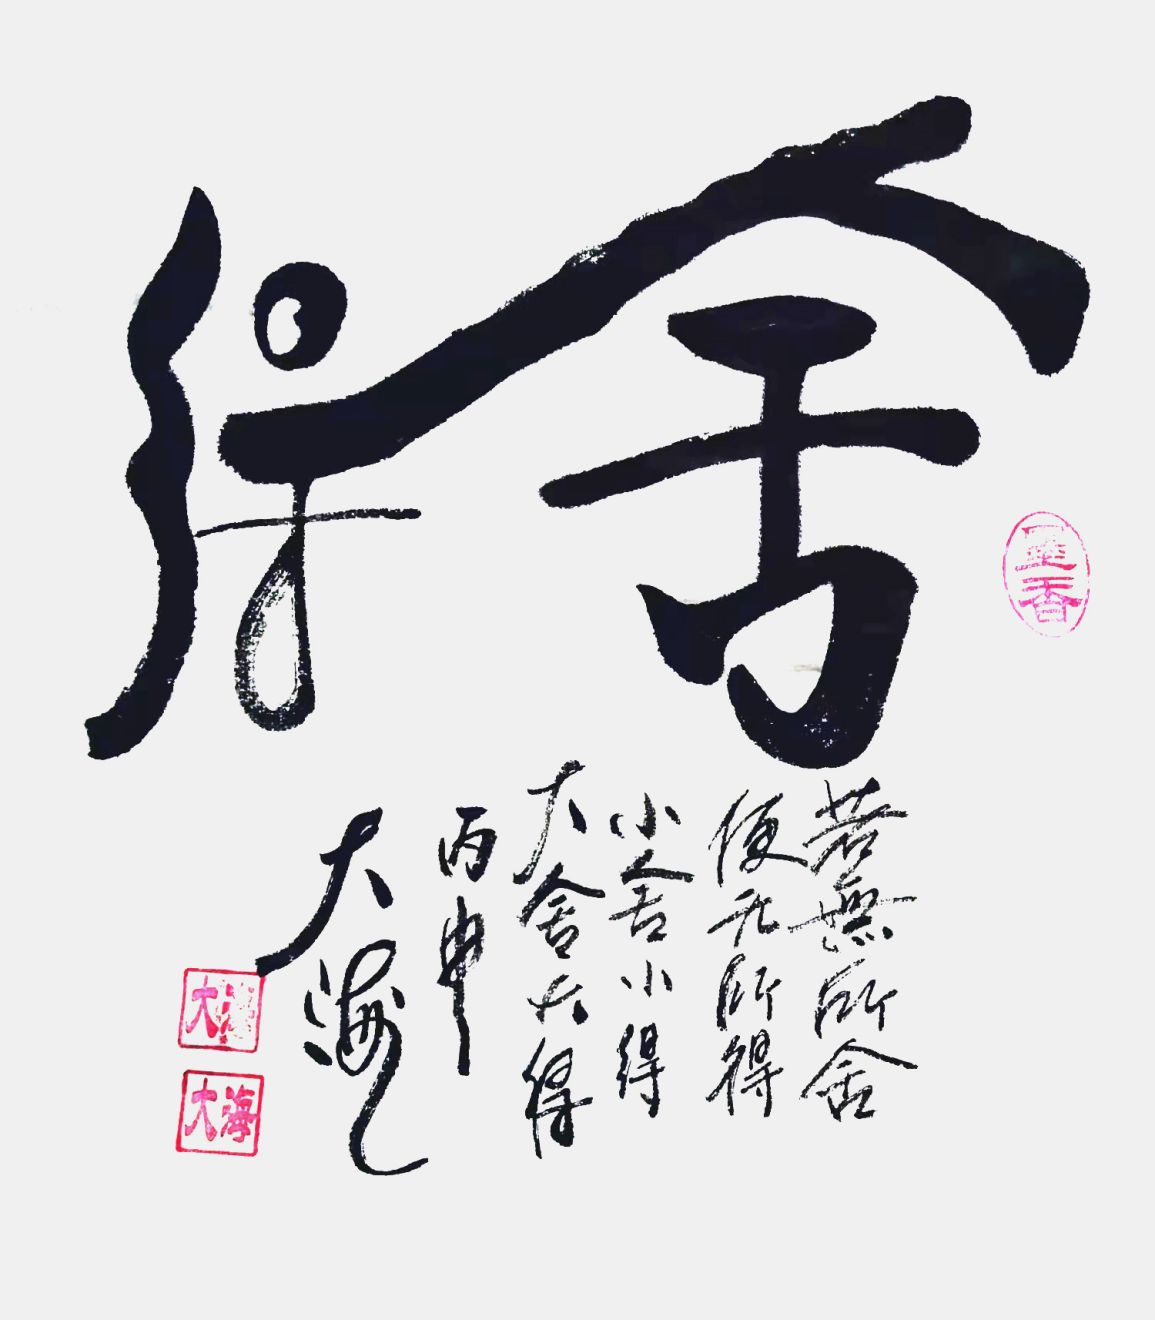 舍得
若無所舍
便无所得
小舍小得
大舍大得
丙申
大海
墨香
大海
大海